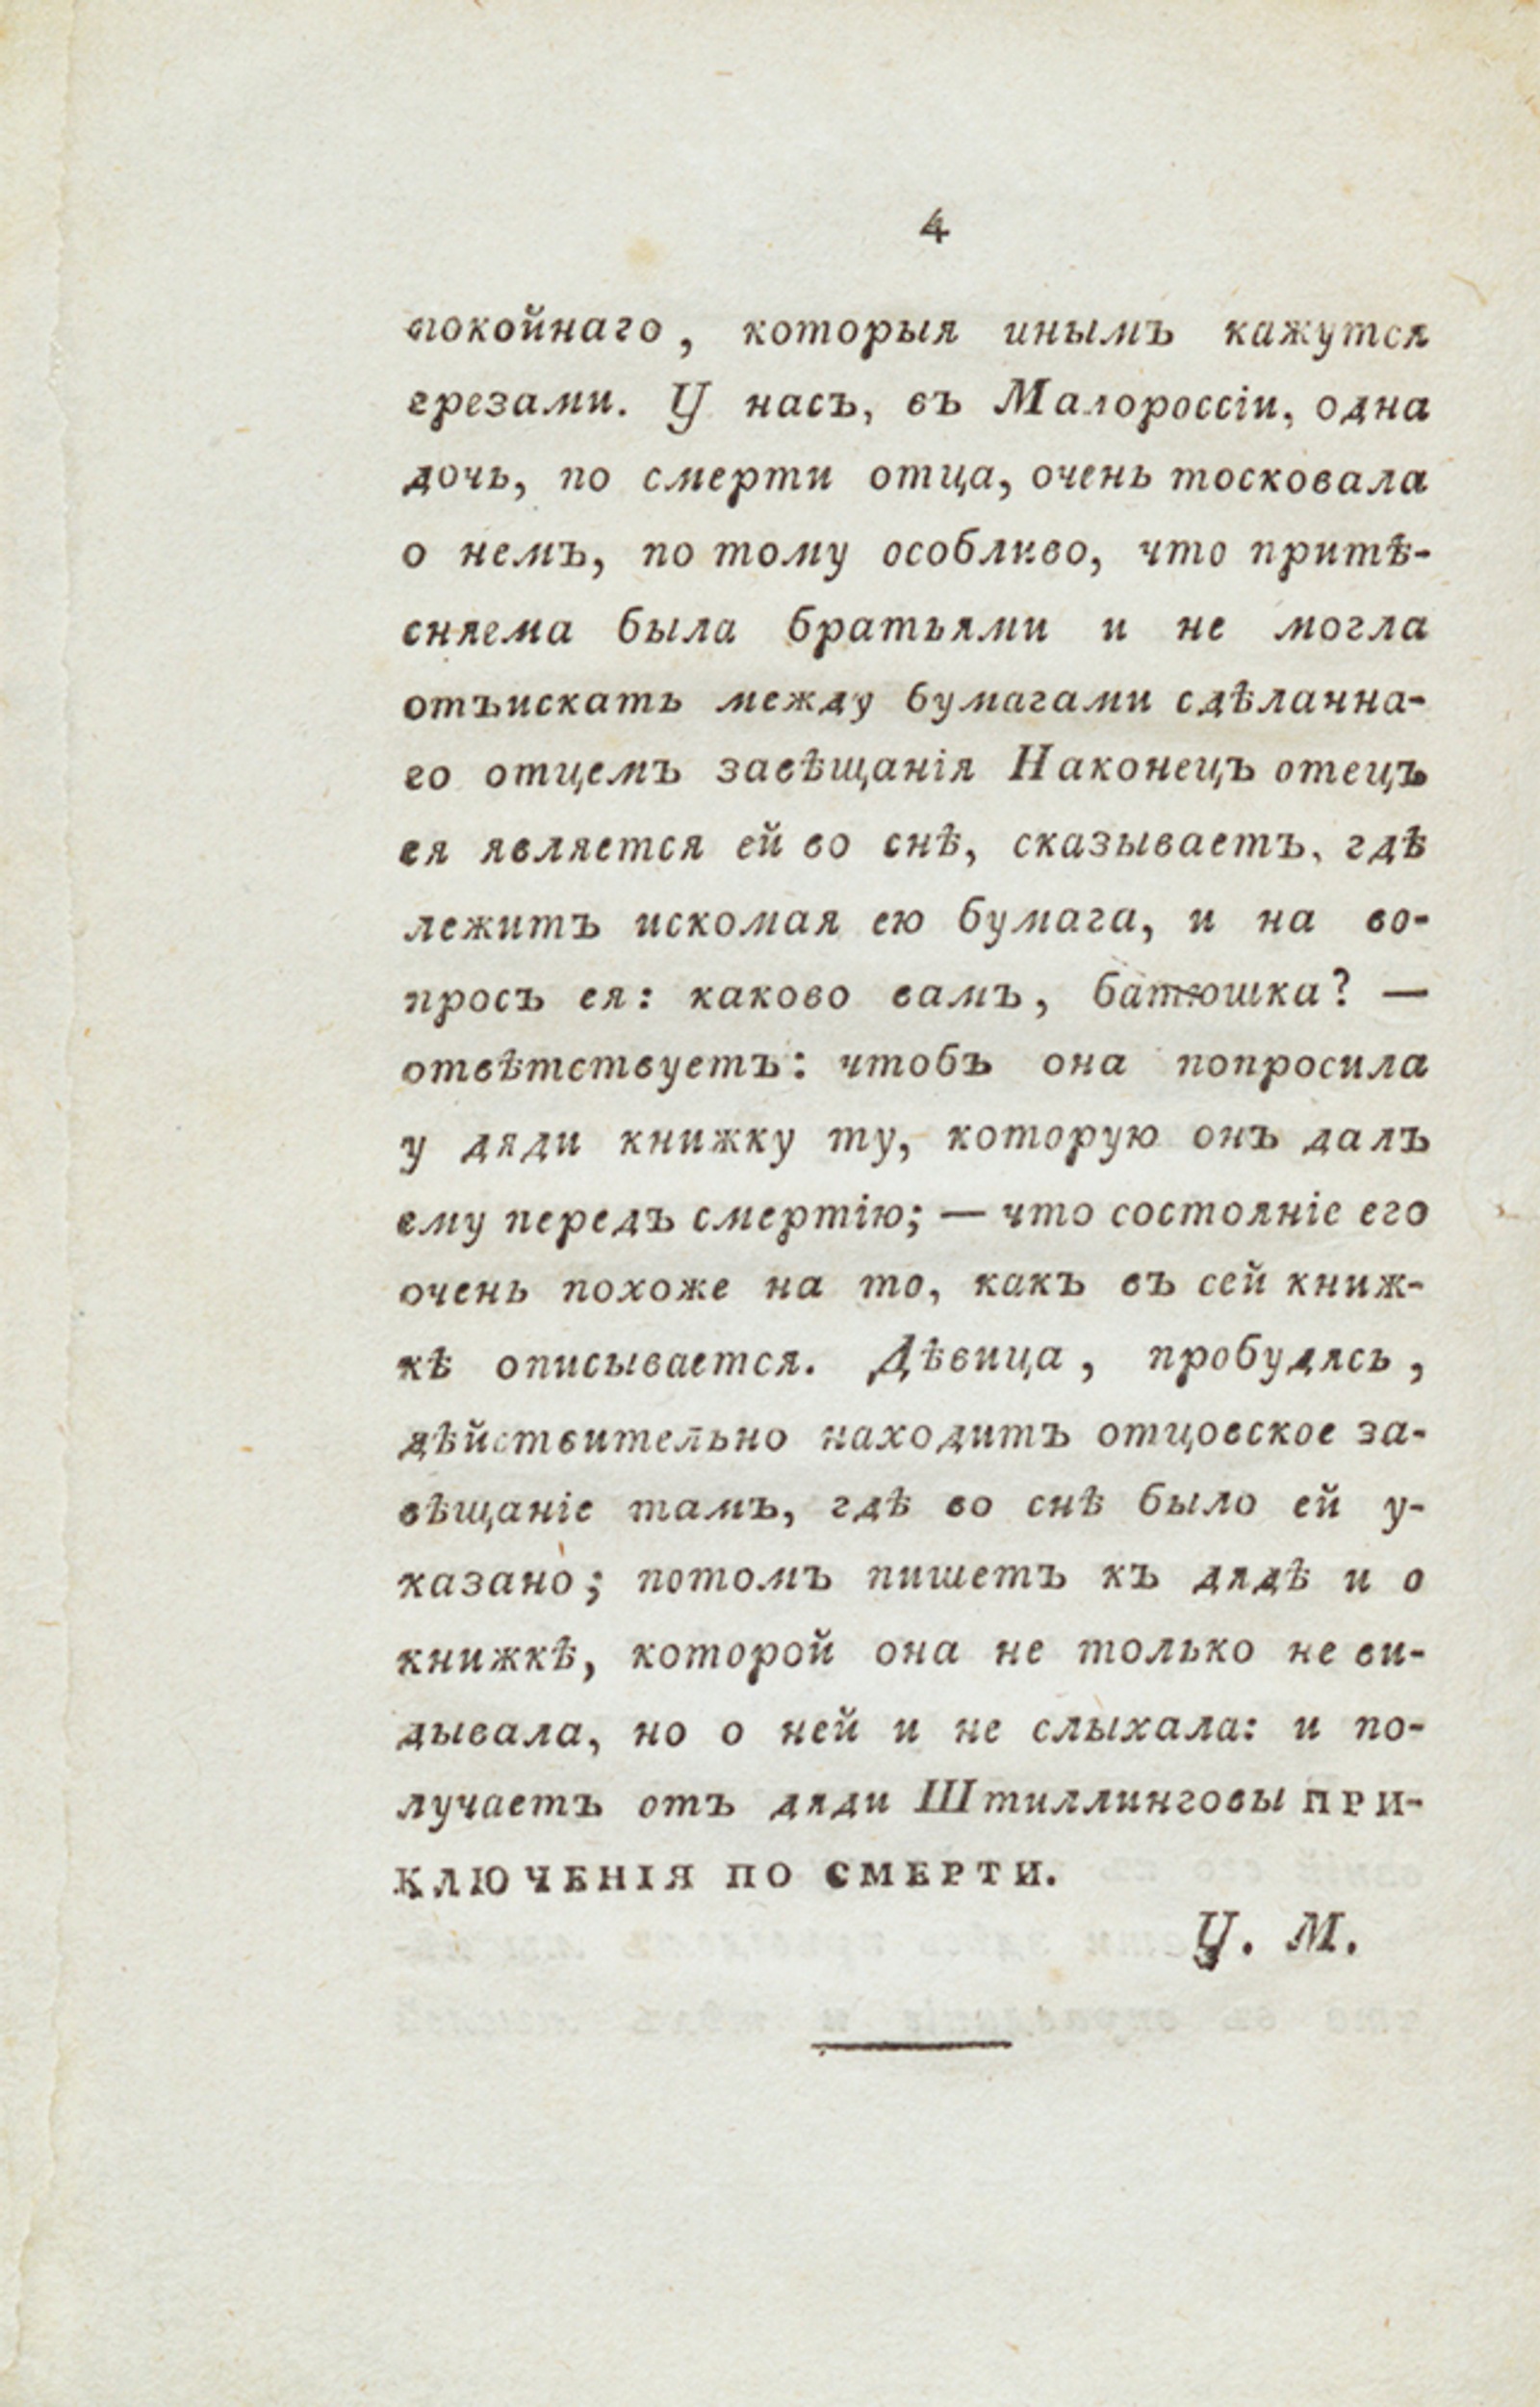 4
покойнаго, которыя инымъ кажутся
грезами. У насъ, въ Малороссіи, одна
дочь, по смерти отца, очень тосковала
о немъ, по тому особливо, что притѣ-
сняема была братьями и не могла
отъискать между бумагами сдѣланна-
го отцемъ завѣщанія Наконецъ отецъ
ея является ей во снѣ, сказываетъ, гдѣ
лежитъ искомая ею бумага, и на во-
просъ ея: каково вамъ, батюшка? —
отвѣтствуетъ: чтобъ она попросила
у дяди книжку ту, которую онъ далъ
ему передъ смертію; — что состояніе его
очень похоже на то, какъ въ сей книж-
кѣ описывается. Дѣвица, пробудясь,
дѣйствительно находитъ отцовское за-
вѣщаніе тамъ, гдѣ во снѣ было ей у-
казано; потомъ пишетъ къ дядѣ и о
книжкѣ, которой она не только не ви-
дывала, но о ней и не слыхала: и по-
лучаетъ отъ дяди Штиллинговы ПРИ-
КЛЮЧЕНІЯ ПО СМЕРТИ.
У. М.